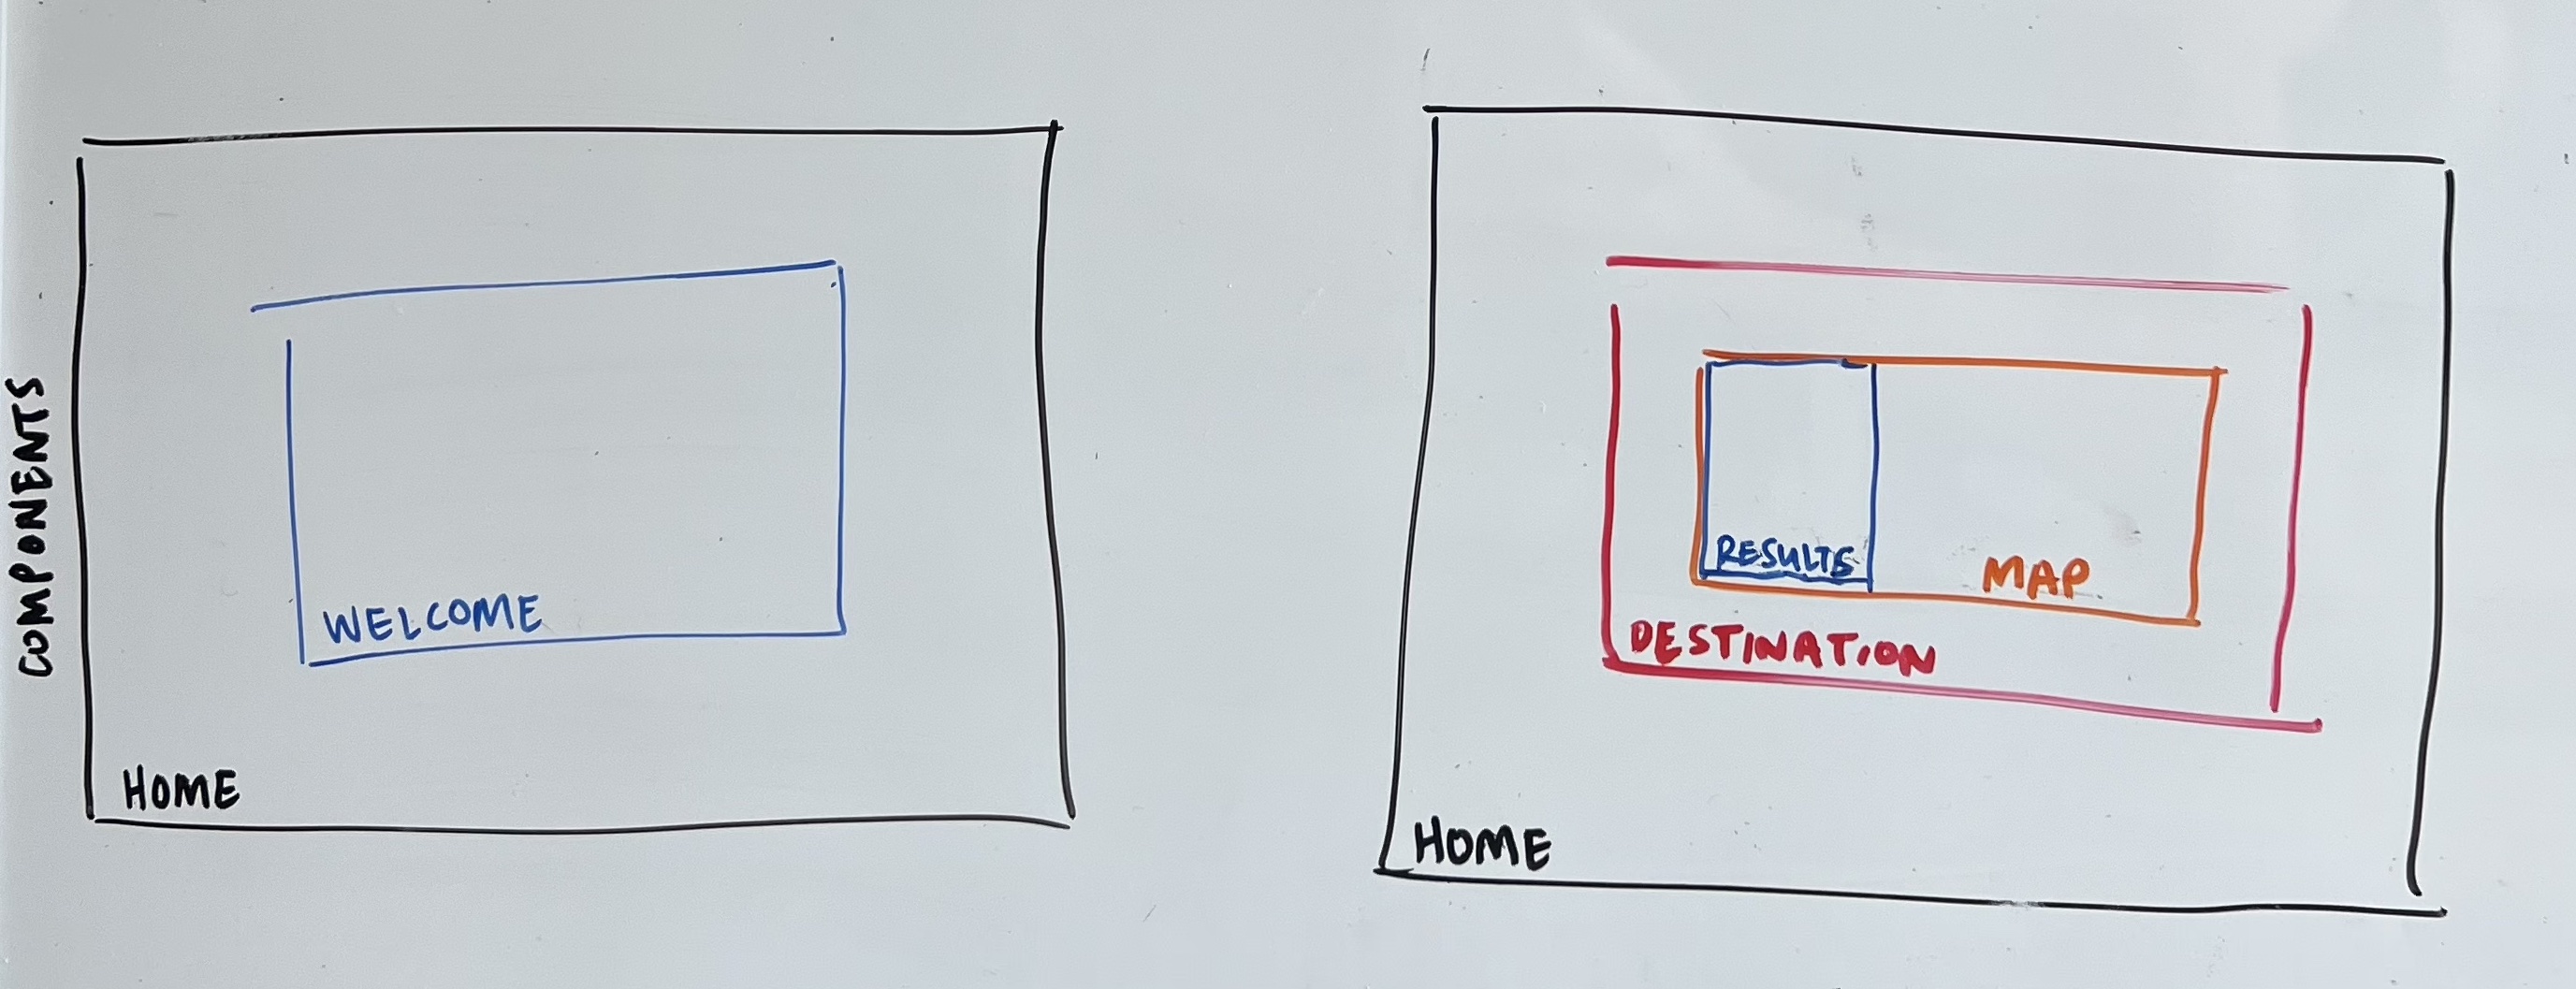 COMPONENTS
WELCOME
HOME
RESULTS
MAP
DESTINATION
HOME